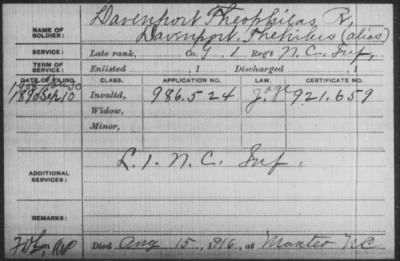 NAME OF SOLDIER: Davenport Theophilas R,
Davenport, Thehilus (alias)
SERVICE: Late rank, Co. G, 1 Reg't N.C. Inf,
TERM OF SERVICE: Enlisted , 1 Discharged , 1
DATE OF FILING. CLASS. APPLICATION NO. LAW. CERTIFICATE NO.
1890 Sep 10 Invalid, 986.524 921.659
Widow,
Minor,
ADDITIONAL SERVICES: L. 1. N.C. Inf.
REMARKS:
Died Aug 15, 1916, at Manteo N.C